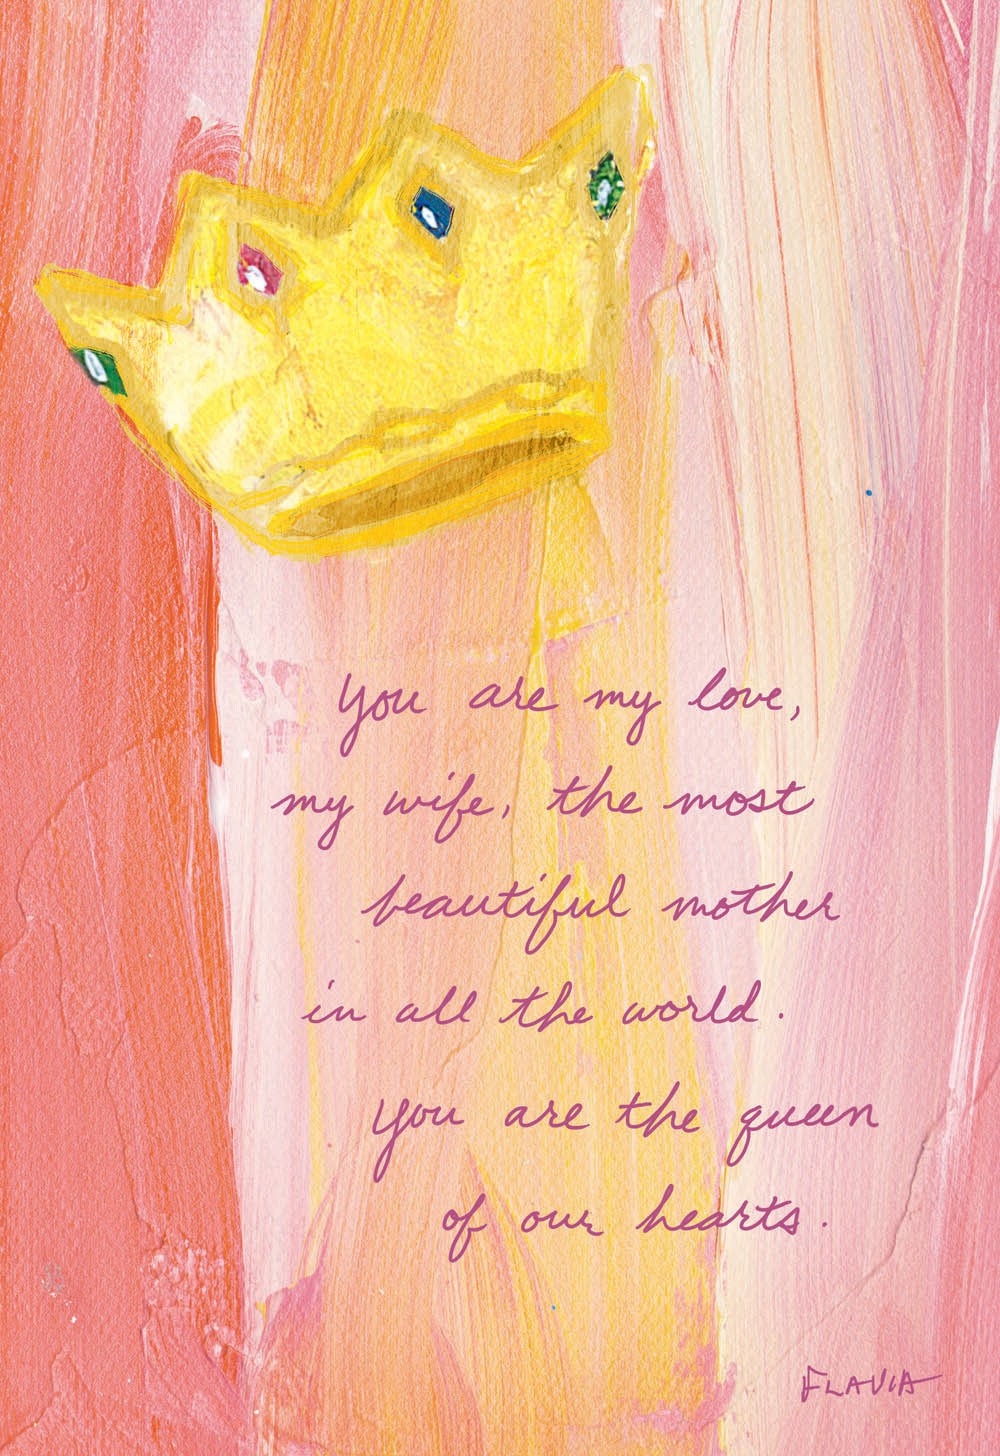 You are my love,
my wife, the most
beautiful mother
in all the world.
You are the queen
of our hearts.
FLAVIA